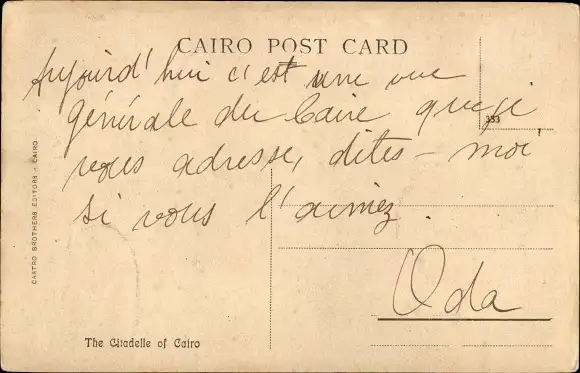 CAIRO POST CARD
Aujourd'hui c'est une vue
générale du Caire que je
333
vous adresse, dites-moi
si vous l'aimez.
Oda
The Citadelle of Cairo
CASTRO BROTHERS EDITORS - CAIRO